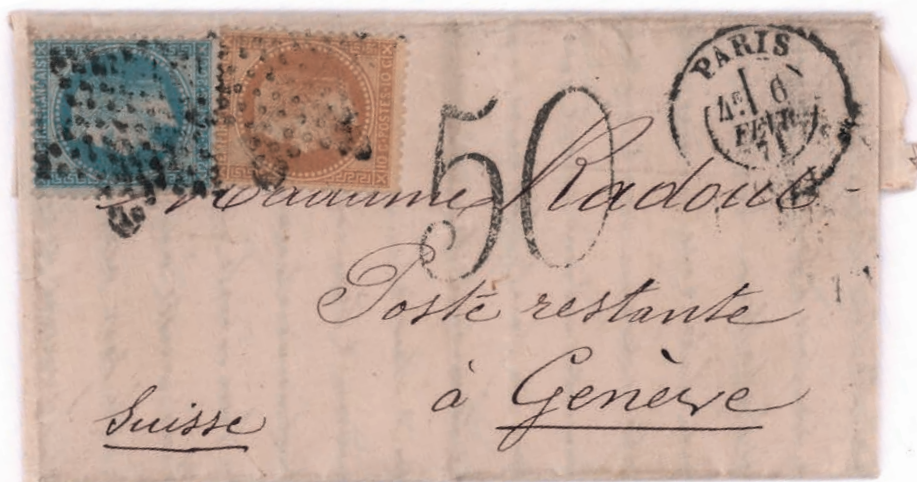 PARIS
6
FEVR.
71
50
Madame Radous
Poste restante
à Genève
Suisse